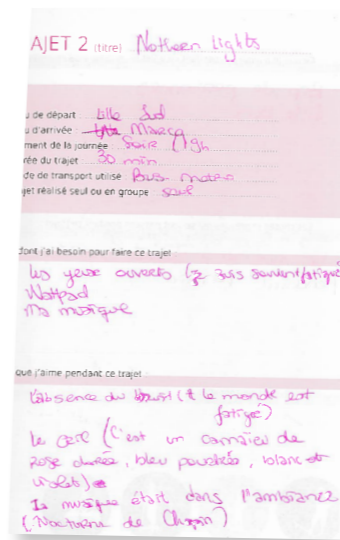 AJET 2 (titre) Nothern Lights
u de départ Lille Sud
u d'arrivée Marcq
ment de la journée Soir (19h
rée du trajet 30 min
de de transport utilisé Bus metro
jet réalisé seul ou en groupe seul
dont j'ai besoin pour faire ce trajet
les yeux ouverts (je suis souvent fatigué
Wattpad
Ma musique
que j'aime pendant ce trajet
L'absence du bruit (tt le monde est
fatigué)
Le ciel (C'est un camaïeu de
rose dorée, bleu poudrée, blanc et
violet)
La musique était dans l'ambiance
(Nocturne de Chopin)